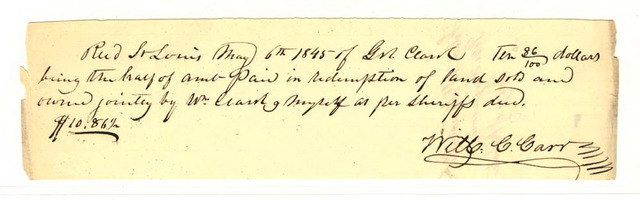 Recd St Louis May 6th 1845 of Gov. Clark Ten 86/100 dollars
being the half of amt paid in redemption of land sold and
owned jointly by Wm Clark & myself as per sheriffs deed.
$10.86½
Will. C. Carr